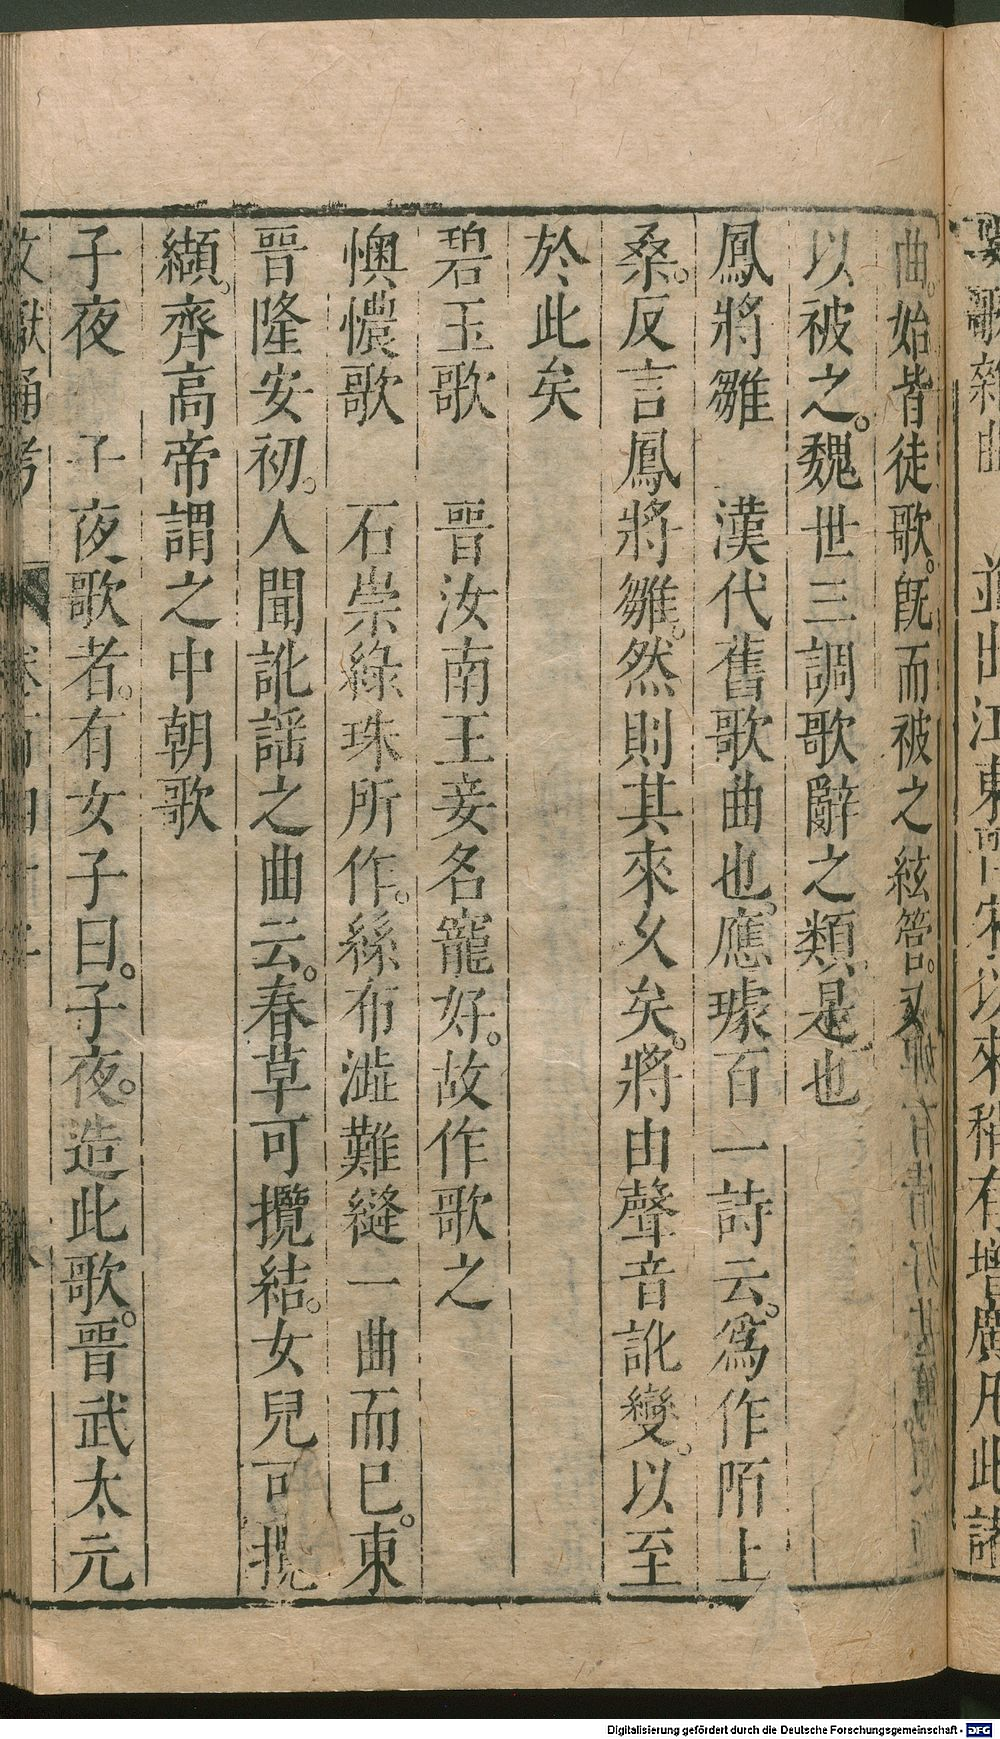 曲。始皆徒歌。旣而被之絃管。又
以被之。魏世三調歌辭之類是也
鳳將雛　漢代舊歌曲也。應璩百一詩云。爲作陌上
桑。反言鳳將雛。然則其來久矣。將由聲音訛變。以至
於此矣
碧玉歌　晉汝南王妾名寵好。故作歌之
懊憹歌　石崇綠珠所作。絲布澁難縫一曲而巳。東
晉隆安初。人閒訛謡之曲云。春草可攬結。女兒可攬
纈。齊高帝謂之中朝歌
子夜　子夜歌者。有女子曰。子夜。造此歌。晉武太元
文獻通考　卷一百四十二
Digitalisierung gefördert durch die Deutsche Forschungsgemeinschaft - DFG